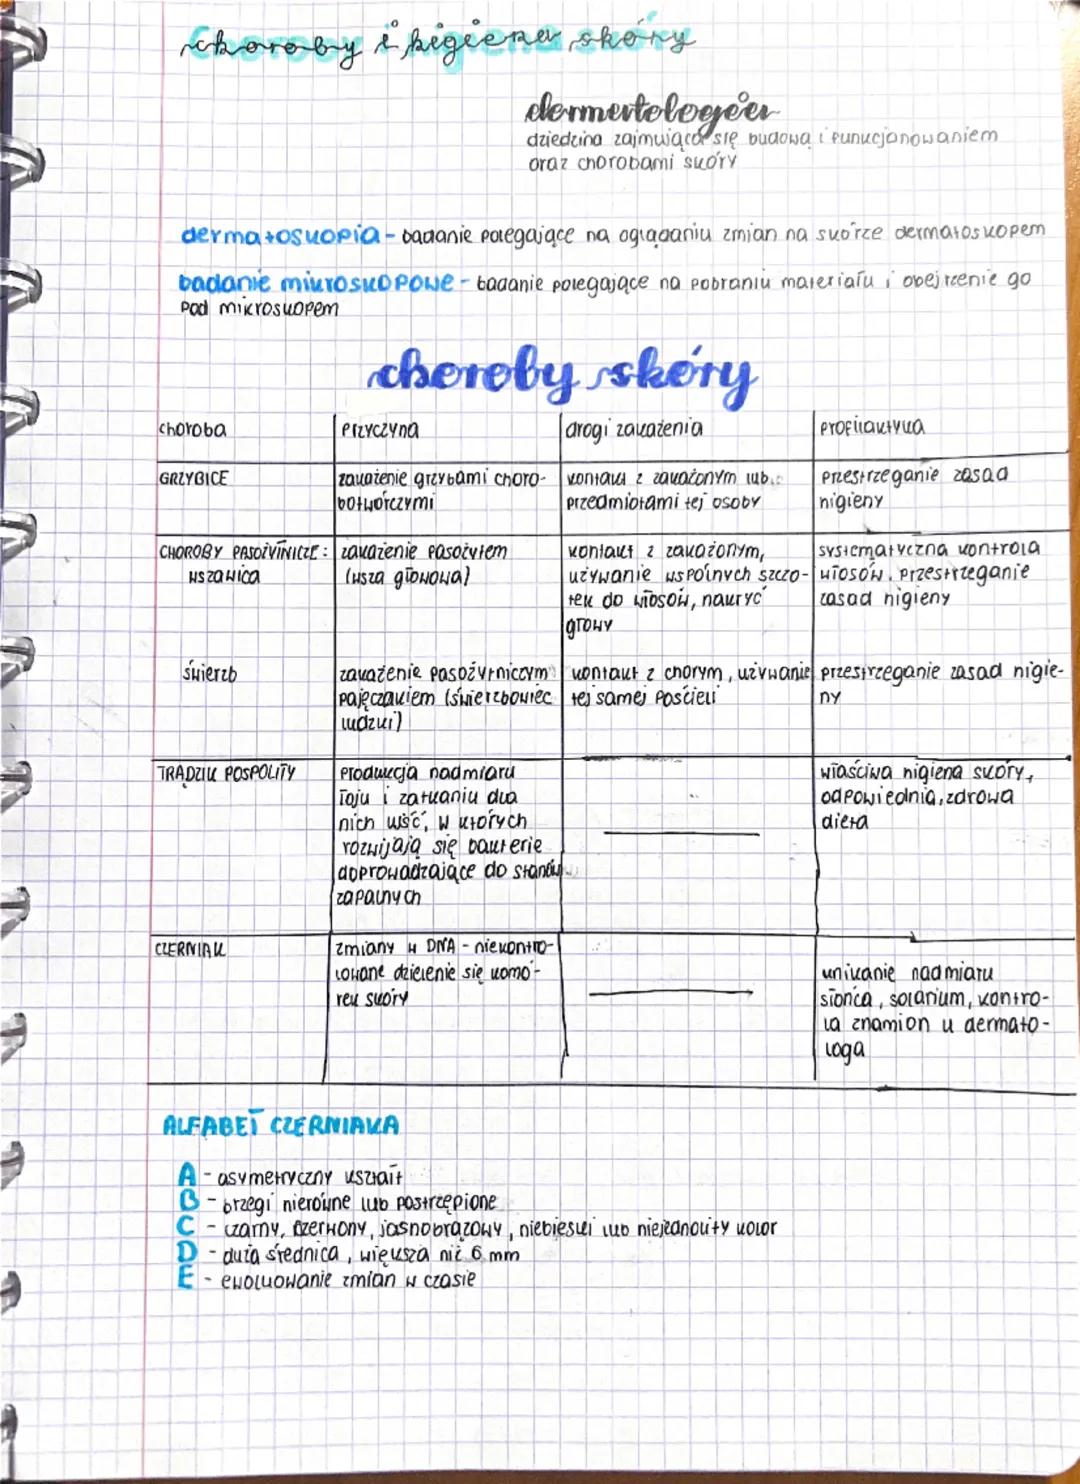 Choroby i higiena skóry
dermatologia
dziedzina zajmująca się budową i funkcjonowaniem
oraz chorobami skóry
dermatoskopia - badanie polegające na oglądaniu zmian na skórze dermatoskopem
badanie mikroskopowe - badanie polegające na pobraniu materiału i obejrzenie go
pod mikroskopem
choroby skóry
choroba | przyczyna | drogi zakażenia | profilaktyka
GRZYBICE | zakażenie grzybami choro- | kontakt z zakażonym lub | przestrzeganie zasad
botwórczymi | przedmiotami tej osoby | higieny
CHOROBY PASOŻYTNICZE: | zakażenie pasożytem | kontakt z zakażonym, | systematyczna kontrola
wszawica | (wsza głowowa) | używanie wspólnych szczo- | włosów, przestrzeganie
tek do włosów, nakryć | zasad higieny
głowy
świerzb | zakażenie pasożytniczym | kontakt z chorym, używanie | przestrzeganie zasad higie-
pajęczakiem (świerzbowiec | tej samej pościeli | ny
ludzki)
TRĄDZIK POSPOLITY | produkcja nadmiaru | właściwa higiena skóry,
łoju i zatkaniu dla | odpowiednia, zdrowa
nich ujść, w których | dieta
rozwijają się bakterie
doprowadzające do stanów
zapalnych
CZERNIAK | zmiany w DNA - niekontro-
lowane dzielenie się komó- | unikanie nadmiaru
rek skóry | słońca, solarium, kontro-
la znamion u dermato-
loga
ALFABET CZERNIAKA
A - asymetryczny kształt
B - brzegi nierówne lub postrzępione
C - czarny, czerwony, jasnobrązowy, niebieski lub niejednolity kolor
D - duża średnica, większa niż 6 mm
E - ewoluowanie zmian w czasie